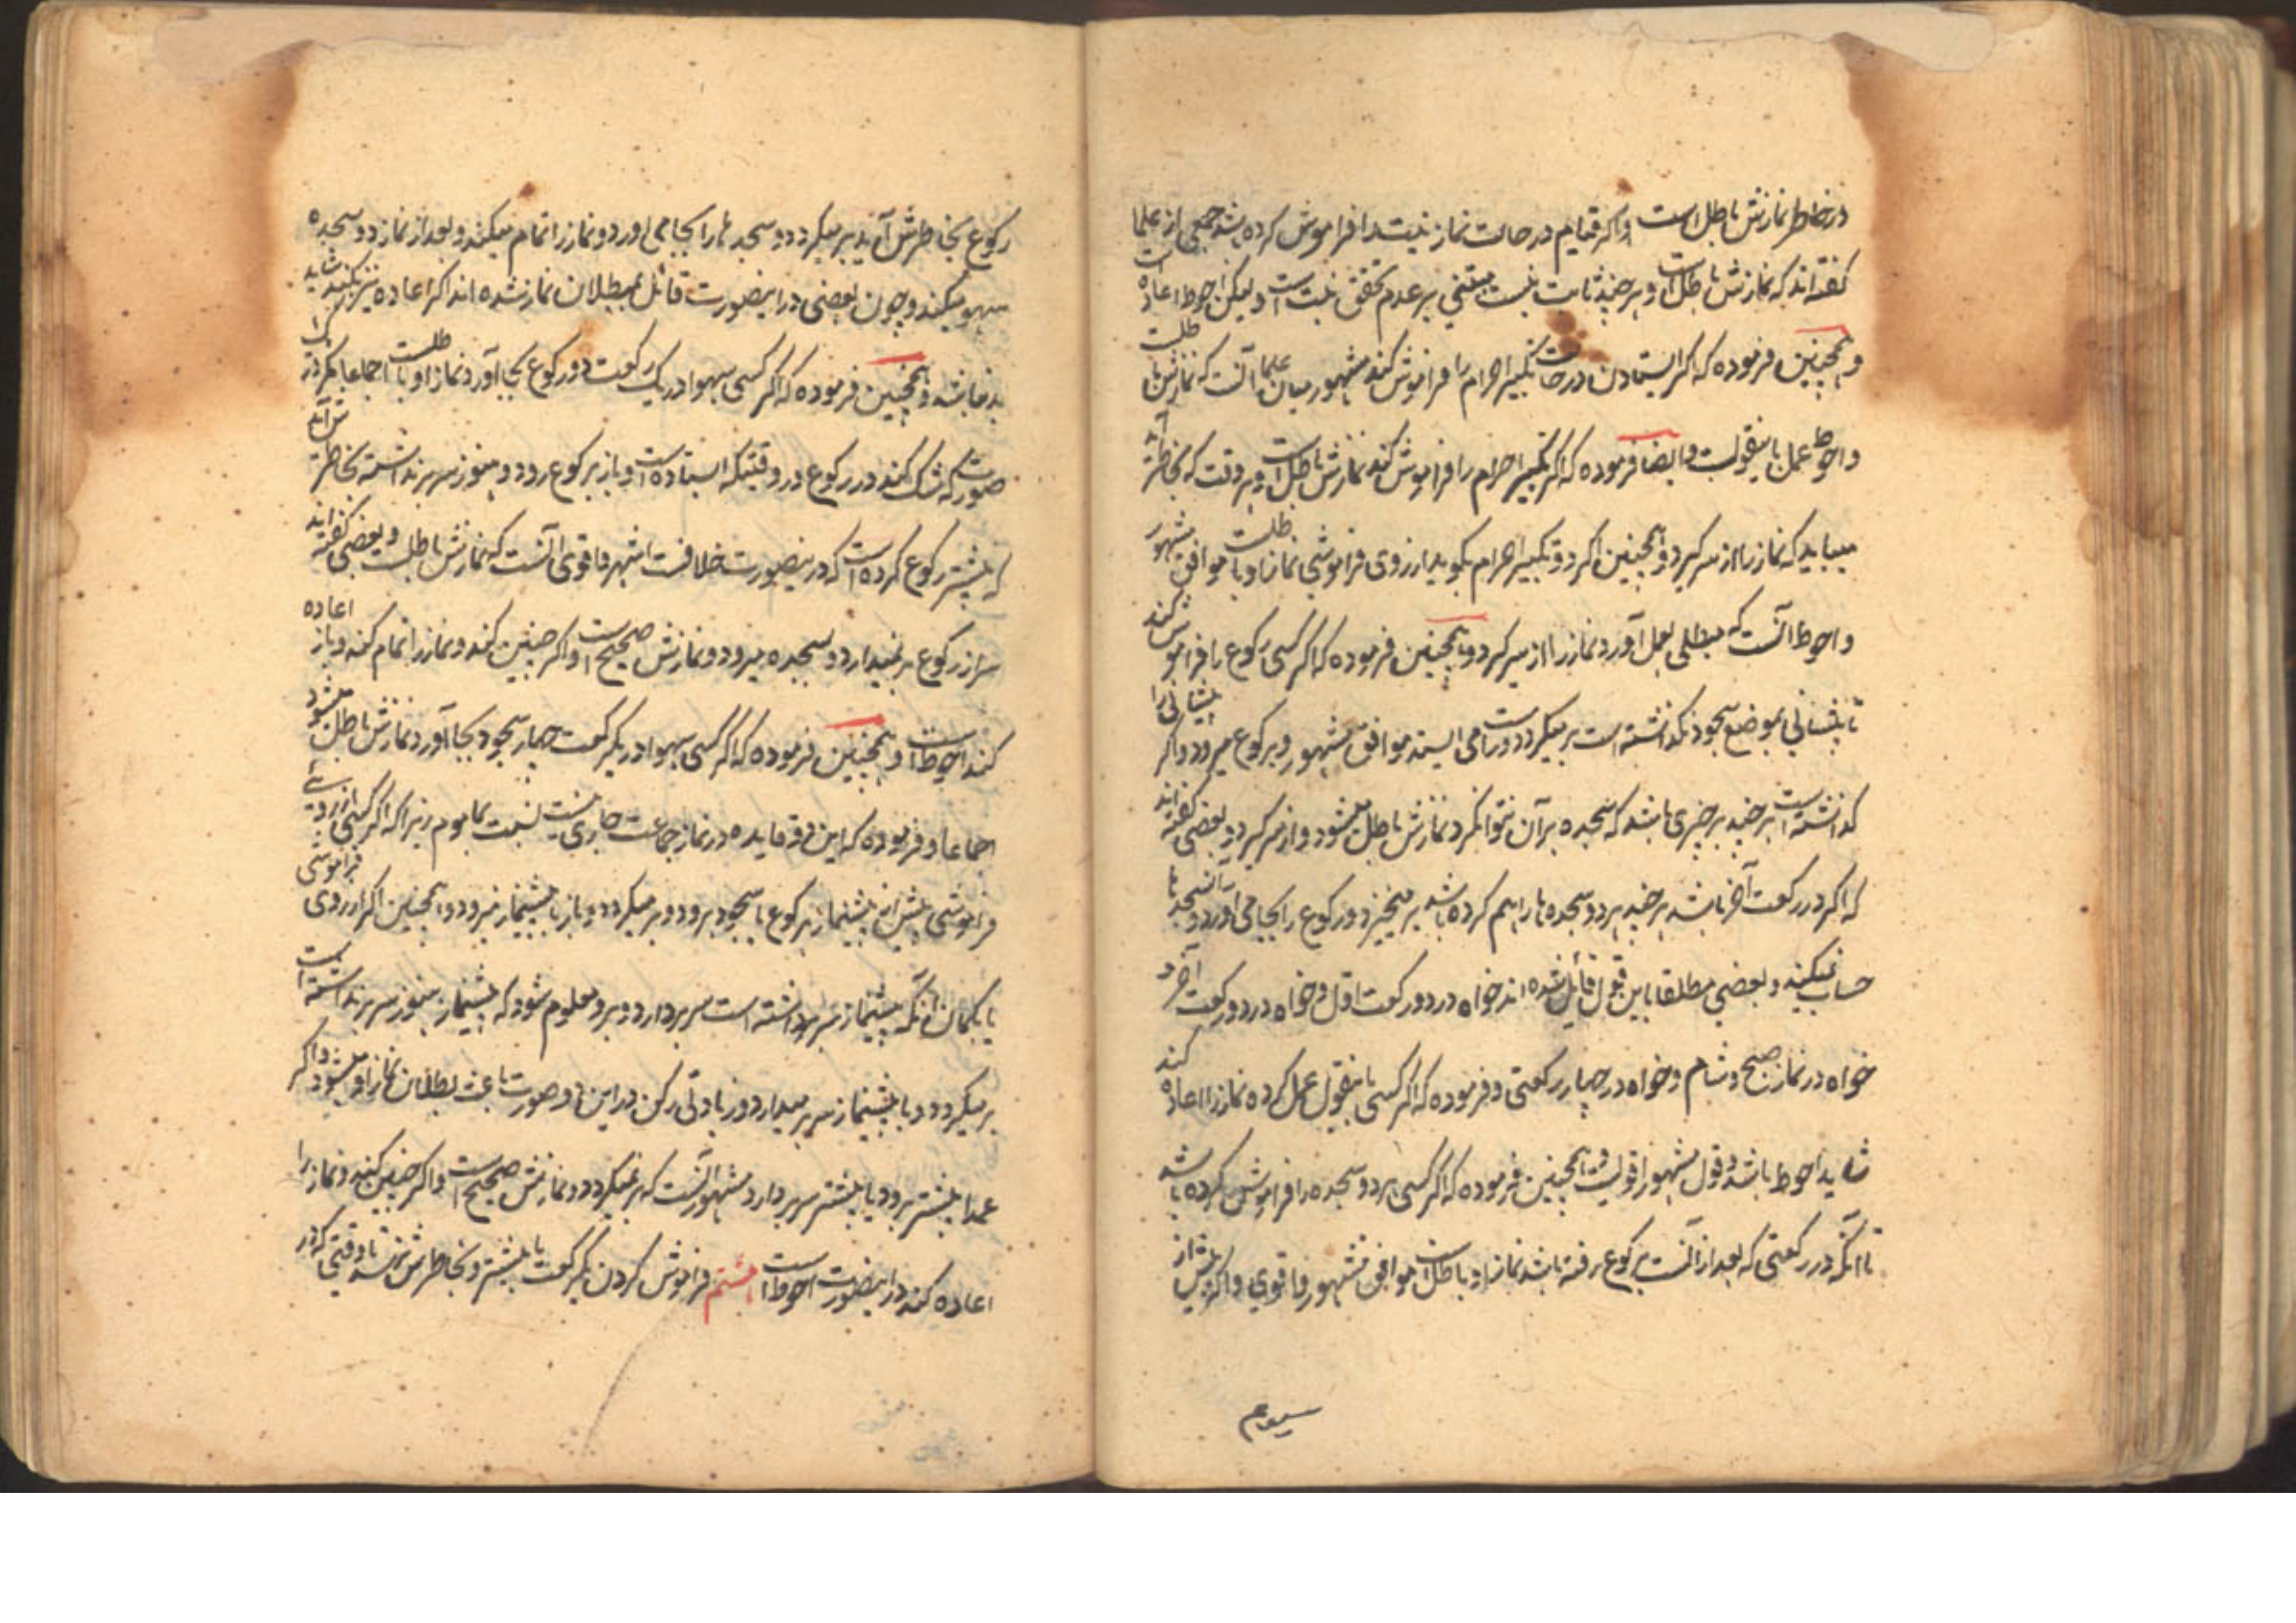 در خاطر نمازش باطل است و اگر قیام در حالت نماز نیت را فراموش کرده باشد جمعی از علما
گفته‌اند که نمازش باطل است و هر چند ثابت نیست مبتنی بر عدم تحقق نیت است و لیکن احوط اعاده است
و همچنین فرموده که اگر ایستادن در حالت تکبیر احرام را فراموش کند مشهور میان علما آنست که نمازش باطلست
و احوط عمل باینقولست و ایضا فرموده که اگر تکبیر احرام را فراموش کند نمازش باطل است و هر وقت که بخاطرش آید
میباید که نماز را از سر گیرد و همچنین اگر دو تکبیر احرام بگوید از روی فراموشی نماز او باطلست موافق مشهور
و احوط آنست که مبطلی بعمل آورد و نماز را از سر گیرد و همچنین فرموده که اگر کسی رکوع را فراموش کند
تا پیشانی بموضع سجود نگذاشته است بر میگردد و راست می ایستد موافق مشهور و برکوع میرود و اگر پیشانی را
گذاشته است هر چند بر چیزی باشد که سجده بر آن نتوانکرد نمازش باطل میشود و از سر گیرد و بعضی گفته‌اند
که اگر در رکعت آخر باشد هر چند هر دو سجده را هم کرده باشد بر میخیزد و رکوع را بجا می آورد و آنسجدها
حساب نمیکند و بعضی مطلقا باین قول قائل شده‌اند خواه در دو رکعت اول و خواه در دو رکعت آخر و
خواه در نماز صبح و شام و خواه در چهار رکعتی و فرموده که اگر کسی باینقول عمل کرده نماز را اعاده کند
شاید احوط باشد و قول مشهور اقویست و همچنین فرموده که اگر کسی هر دو سجده را فراموش کرده باشد
تا آنکه در رکعتی که بعد از آنست برکوع رفته باشد نماز او باطل است موافق مشهور و اقوی و اگر پیش از
رکوع بخاطرش آید بر میگردد و سجدها را بجا می آورد و نماز را تمام میکند و بعد از نماز دو سجده
سهو میکند و چون بعضی در اینصورت قائل ببطلان نماز شده‌اند اگر اعاده نیز بکند شاید
بد نباشد و همچنین فرموده که اگر کسی سهوا در یک رکعت دو رکوع بجا آورد نماز او باطلست اجماعا مگر در
صورتی که شک کند در رکوع در وقتیکه ایستاده است و باز برکوع رود و هنوز سر برنداشته بخاطرش آید
که پیشتر رکوع کرده است که در ینصورت خلافست اشهر و اقوی آنست که نمازش باطلست و بعضی گفته‌اند
سر از رکوع بر نمیدارد و بسجده میرود و نمازش صحیح است و اگر چنین کند و نماز را تمام کند و باز اعاده
کند احوط است و همچنین فرموده که اگر کسی سهوا در یکرکعت چهار سجود بجا آورد نمازش باطل میشود
اجماعا و فرموده که این دو قاعده در نماز جماعت جاری نیست نسبت بماموم زیرا که اگر کسی از روی
فراموشی پیش از پیشنماز برکوع یا سجود برود و بر میگردد و باز با پیشنماز میرود و همچنین اگر از روی فراموشی
یا بگمان آنکه پیشنماز سر برداشته است سر بردارد و بر او معلوم شود که پیشنماز هنوز سر برنداشته است
بر میگردد و با پیشنماز سر بر میدارد و زیادتی رکن در این دو صورت باعث بطلان نماز او میشود و اگر
عمدا پیشتر برود یا پیشتر سر بردارد مشهور آنست که بر نمیگردد و نمازش صحیح است و اگر چنین کند و نماز را
اعاده کند در اینصورت احوط است هشتم فراموش کردن یکرکعت یا بیشتر و بخاطرش نرسد تا وقتی که در